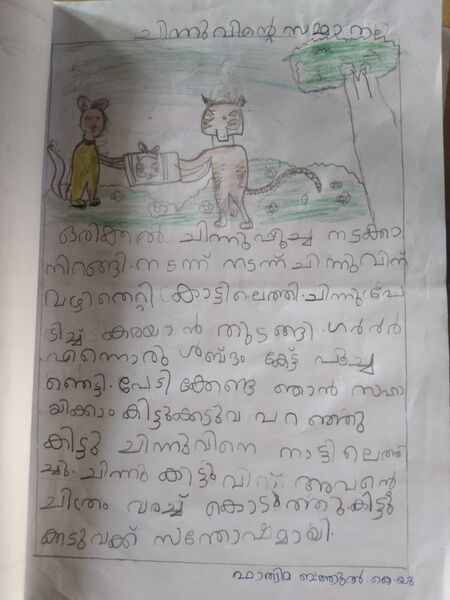 ചിന്നുവിന്റെ സമ്മാനം
ഒരിക്കൽ ചിന്നുപൂച്ച നടക്കാ
നിറങ്ങി. നടന്ന് നടന്ന് ചിന്നുവിന്
വഴിതെറ്റി കാട്ടിലെത്തി. ചിന്നു പേ
ടിച്ച് കരയാൻ തുടങ്ങി. ഗർർർ
എന്നൊരു ശബ്ദം കേട്ട് പൂച്ച
ഞെട്ടി. പേടിക്കേണ്ട ഞാൻ സഹാ
യിക്കാം കിട്ടുക്കടുവ പറഞ്ഞു
കിട്ടു ചിന്നുവിനെ നാട്ടിലെത്തി
ച്ചു. ചിന്നു കിട്ടുവിന് അവന്റെ
ചിത്രം വരച്ച് കൊടുത്തു. കിട്ടു
ക്കടുവക്ക് സന്തോഷമായി.
ഫാത്വിമ ബത്തൂൽ. കെ. യു